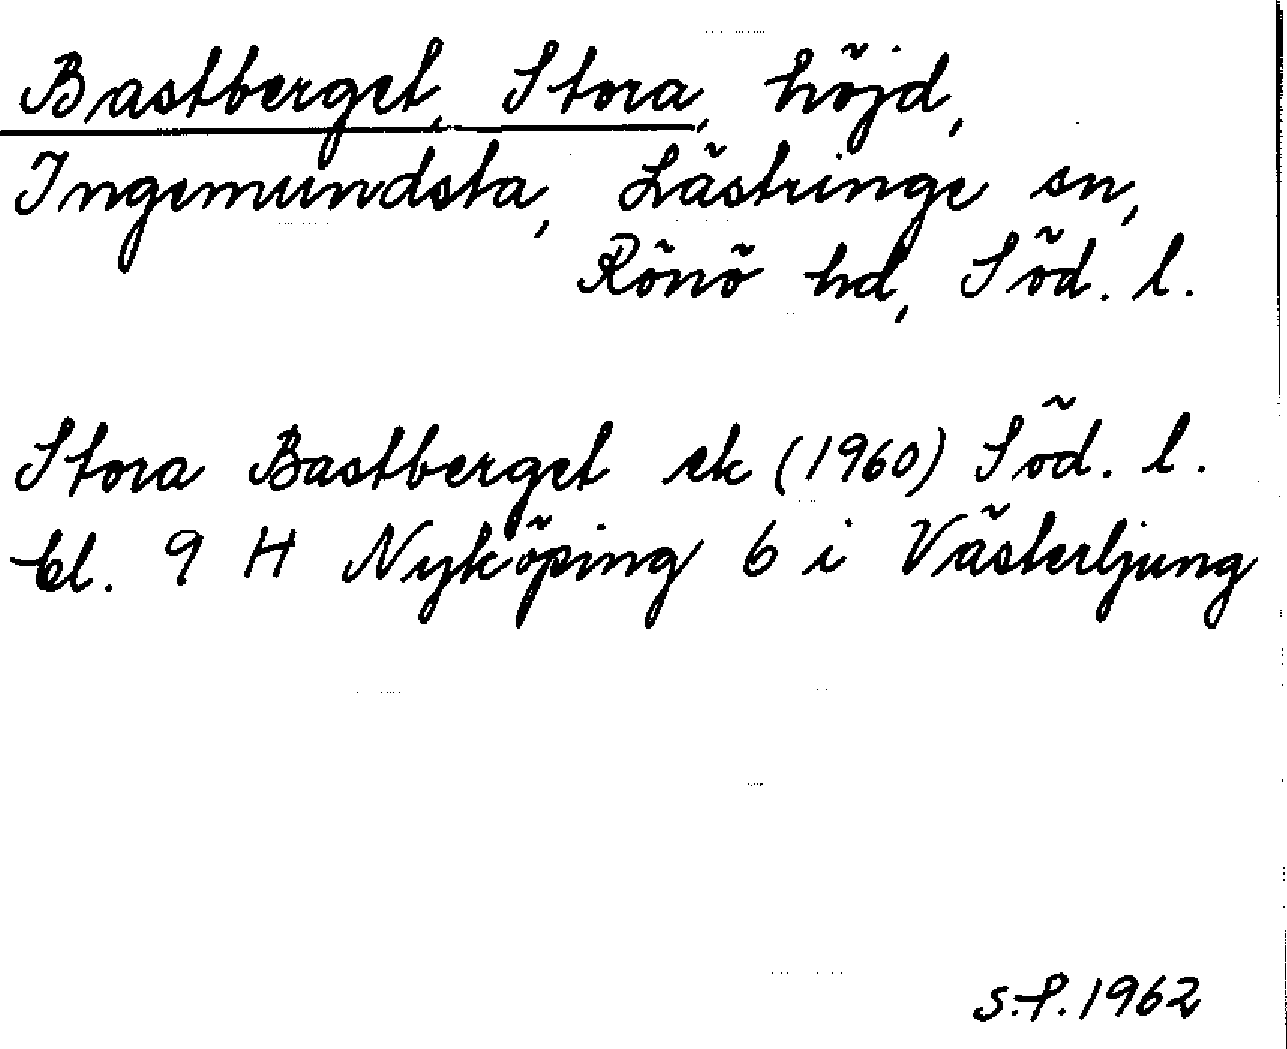 Bastberget, Stora, höjd,
Ingemundsta, Lästringe sn,
Rönö hd, Söd. l.
Stora Bastberget ek (1960) Söd. l.
bl. 9 H Nyköping 6 i Västerljung
S.P. 1962